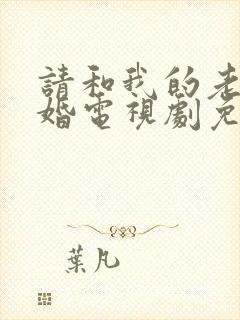 請和我的老
婚電視劇免
葉凡